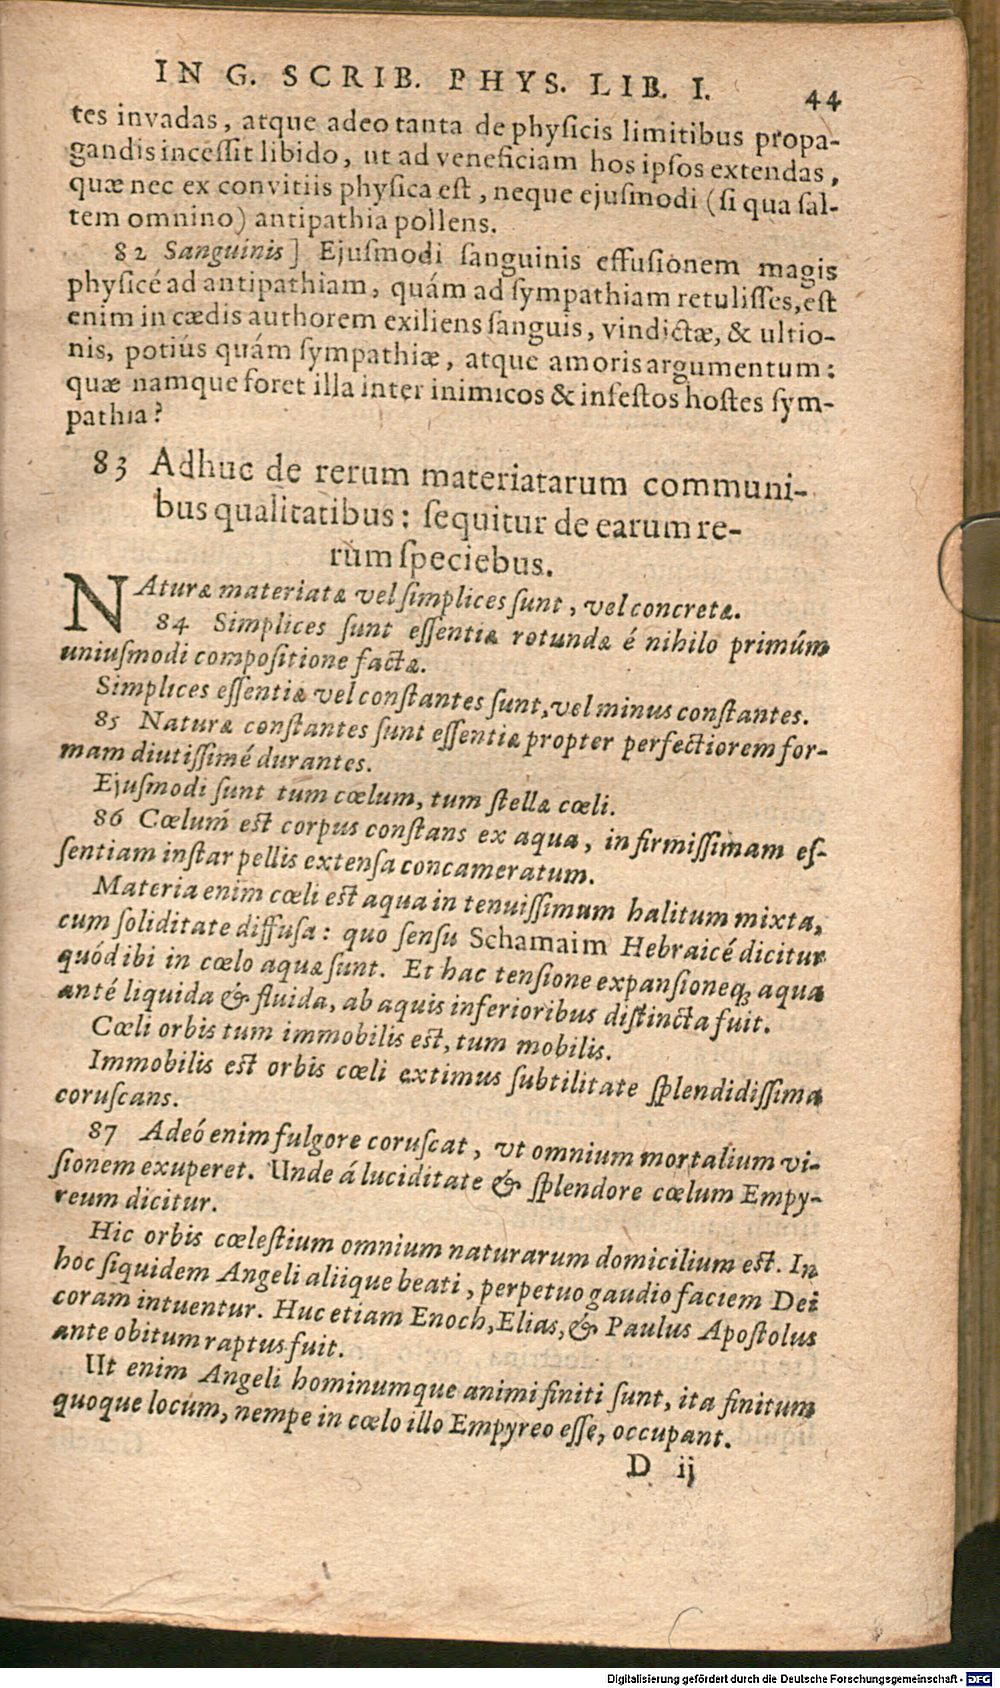 IN G. SCRIB. PHYS. LIB. I. 44
tes invadas, atque adeo tanta de physicis limitibus propa-
gandis incessit libido, ut ad veneficiam hos ipsos extendas,
quæ nec ex convitiis physica est, neque ejusmodi (si qua sal-
tem omnino) antipathia pollens.
82 Sanguinis] Ejusmodi sanguinis effusionem magis
physicé ad antipathiam, quám ad sympathiam retulisses, est
enim in cædis authorem exiliens sanguis, vindictæ, & ultio-
nis, potiús quám sympathiæ, atque amoris argumentum:
quæ namque foret illa inter inimicos & infestos hostes sym-
pathia?
83 Adhuc de rerum materiatarum communi-
bus qualitatibus: sequitur de earum re-
rum speciebus.
NAturæ materiatæ vel simplices sunt, vel concretæ.
84 Simplices sunt essentiæ rotundæ é nihilo primúm
uniusmodi compositione factæ.
Simplices essentiæ vel constantes sunt, vel minus constantes.
85 Naturæ constantes sunt essentiæ propter perfectiorem for-
mam diutissimé durantes.
Ejusmodi sunt tum cœlum, tum stellæ cœli.
86 Cœlum est corpus constans ex aqua, in firmissimam es-
sentiam instar pellis extensa concameratum.
Materia enim cœli est aqua in tenuissimum halitum mixta,
cum soliditate diffusa: quo sensu Schamaim Hebraicé dicitur
quód ibi in cœlo aquæ sunt. Et hac tensione expansioneq; aqua
anté liquida & fluida, ab aquis inferioribus distincta fuit.
Cœli orbis tum immobilis est, tum mobilis.
Immobilis est orbis cœli extimus subtilitate splendidissima
coruscans.
87 Adeó enim fulgore coruscat, ut omnium mortalium vi-
sionem exuperet. Unde á luciditate & splendore cœlum Empy-
reum dicitur.
Hic orbis cœlestium omnium naturarum domicilium est. In
hoc siquidem Angeli aliique beati, perpetuo gaudio faciem Dei
coram intuentur. Huc etiam Enoch, Elias, & Paulus Apostolus
ante obitum raptus fuit.
Ut enim Angeli hominumque animi finiti sunt, ita finitum
quoque locum, nempe in cœlo illo Empyreo esse, occupant.
D ij
Digitalisierung gefördert durch die Deutsche Forschungsgemeinschaft - DFG